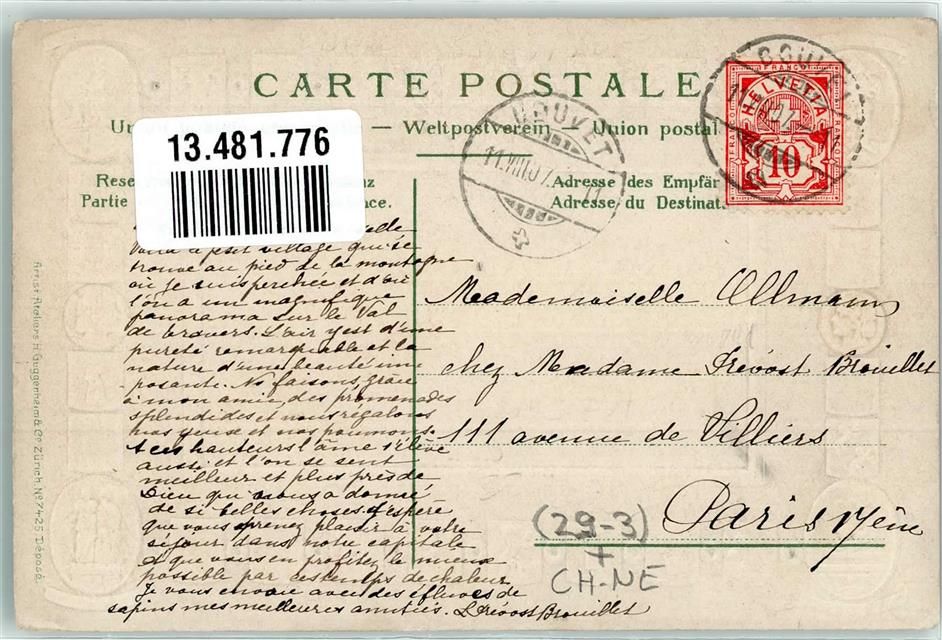 CARTE POSTALE
13.481.776
Weltpostverein — Union postal
Adresse des Empfän
Adresse du Destinat.
Partie
COUVET
11.VIII.07. 11
COUVET
FRANCO
HELVETIA
10
voilà le petit village qui se
trouve au pied de la montagne
où je suis perchée et d'où
l'on a un magnifique
panorama sur le Val
de travers. L'air y est d'une
pureté remarquable et la
nature d'une beauté im
posante. Ns faisons, grâce
à mon amie, des promenades
splendides et nous régalons
nos yeux et nos poumons.
A ces hauteurs l'âme s'élève
aussi et l'on se sent
meilleur et plus près de
Dieu qui nous a donné
de si belles choses. J'espère
que vous prenez plaisir à votre
séjour dans notre capitale
et que vous en profitez le mieux
possible par ces temps de chaleur
Je vous envoie avec des effluves de
sapins mes meilleures amitiés. L. Prévost Brouillet
Mademoiselle Ullmann
chez Madame Prévost Brouillet
111 avenue de Villiers
Paris 17ème
(29-3)
+
CH-NE
Artist. Ateliers H. Guggenheim & Co. Zürich No 7425 Déposé.